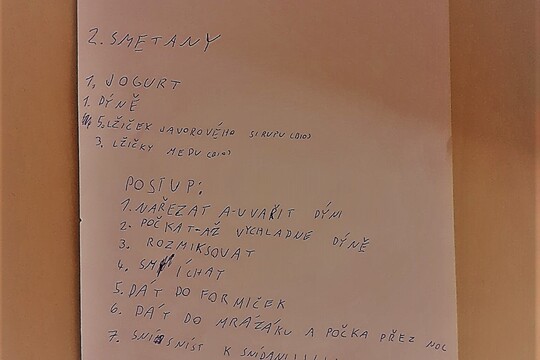 2. SMETANY
1, JOGURT
1. DÝNĚ
5. LŽIČEK JAVOROVÉHO SIRUPU (BIO)
3. LŽIČKY MEDU (BIO)
POSTUP:
1. NAŘEZAT A-UVAŘIT DÝNI
2. POČKAT-AŽ VYCHLADNE DÝNĚ
3. ROZMIKSOVAT
4. SMÍCHAT
5. DÁT DO FORMIČEK
6. DÁT DO MRAZÁKU A POČKA PŘEZ NOC
7. SNÍST K SNÍDANI!!!!!!